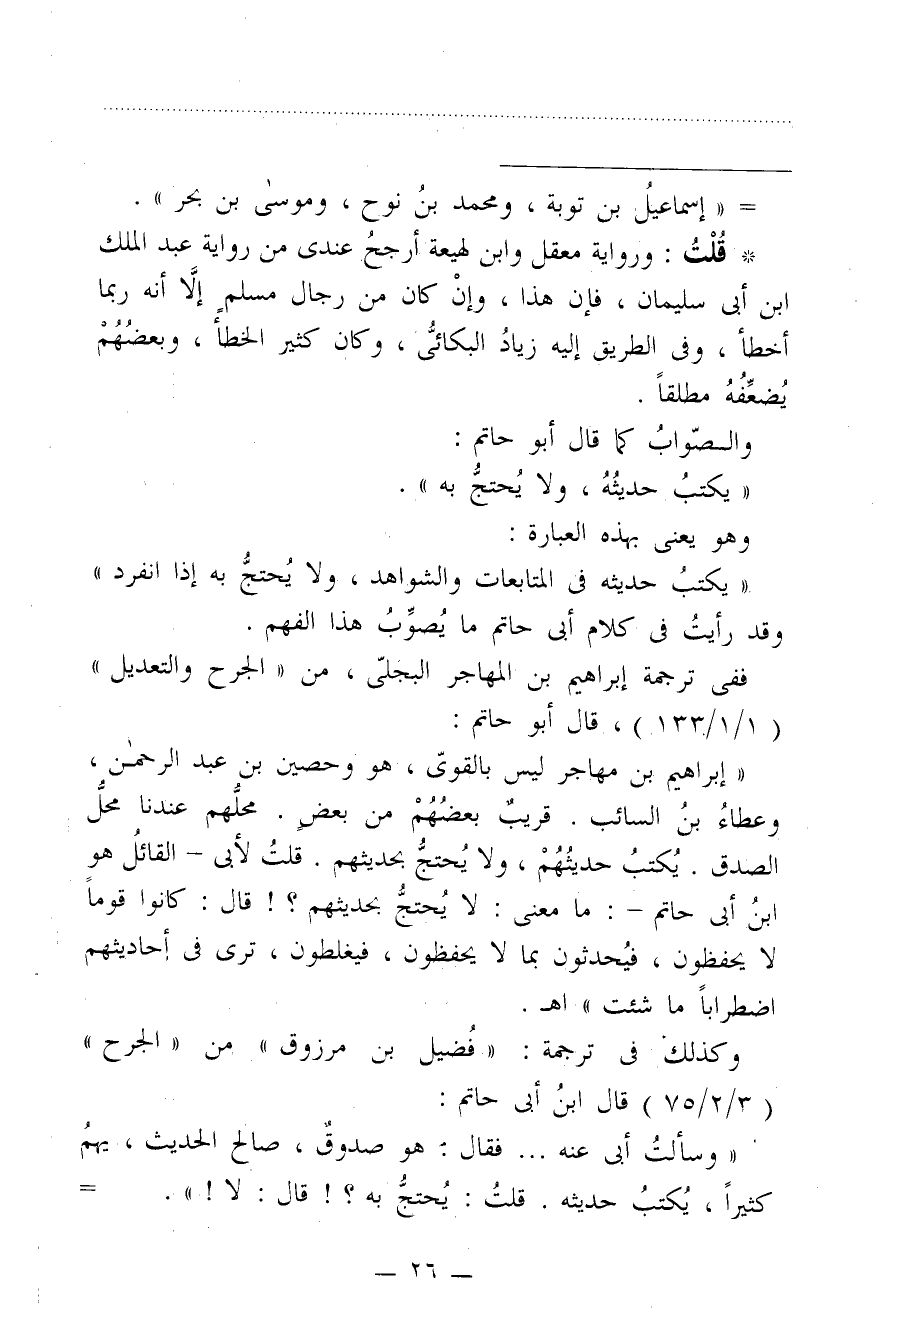 = « إسماعيلُ بن توبة ، ومحمد بنُ نوح ، وموسىٰ بن بحر » .
* قُلْتُ : ورواية معقل وابن لهيعة أرجحُ عندى من رواية عبد الملك
ابن أبى سليمان ، فإن هذا ، وإنْ كان من رجال مسلمٍ إلَّا أنه ربما
أخطأ ، وفى الطريق إليه زيادُ البكائىُّ ، وكان كثير الخطأ ، وبعضُهُمْ
يُضعِّفُهُ مطلقاً .
والـصّوابُ كما قال أبو حاتم :
« يكتبُ حديثُهُ ، ولا يُحتجُّ به » .
وهو يعنى بهذه العبارة :
« يكتبُ حديثه فى المتابعات والشواهد ، ولا يُحتجُّ به إذا انفرد »
وقد رأيتُ فى كلام أبى حاتم ما يُصوِّبُ هذا الفهم .
ففى ترجمة إبراهيم بن المهاجر البجلىّ ، من « الجرح والتعديل »
( ١/١/ ١٣٣ ) ، قال أبو حاتم :
« إبراهيم بن مهاجر ليس بالقوىّ ، هو وحصين بن عبد الرحمٰن ،
وعطاءُ بنُ السائب . قريبٌ بعضُهُمْ من بعضٍ . محلُّهم عندنا محلُّ
الصدق . يُكتبُ حديثُهُمْ ، ولا يُحتجُّ بحديثهم . قلتُ لأبى – القائلُ هو
ابنُ أبى حاتم – : ما معنى : لا يُحتجُّ بحديثهم ؟ ! قال : كانوا قوماً
لا يحفظون ، فيُحدثون بما لا يحفظون ، فيغلطون ، ترى فى أحاديثهم
اضطراباً ما شئت » اهـ .
وكذلك فى ترجمة : « فُضيل بن مرزوق » من « الجرح »
( ٧٥/٢/٣ ) قال ابنُ أبى حاتم :
« وسألتُ أبى عنه ... فقال : هو صدوقٌ ، صالح الحديث ، يهمُ
كثيراً ، يُكتبُ حديثه . قلتُ : يُحتجُّ به ؟ ! قال : لا ! » . =
— ٢٦ —